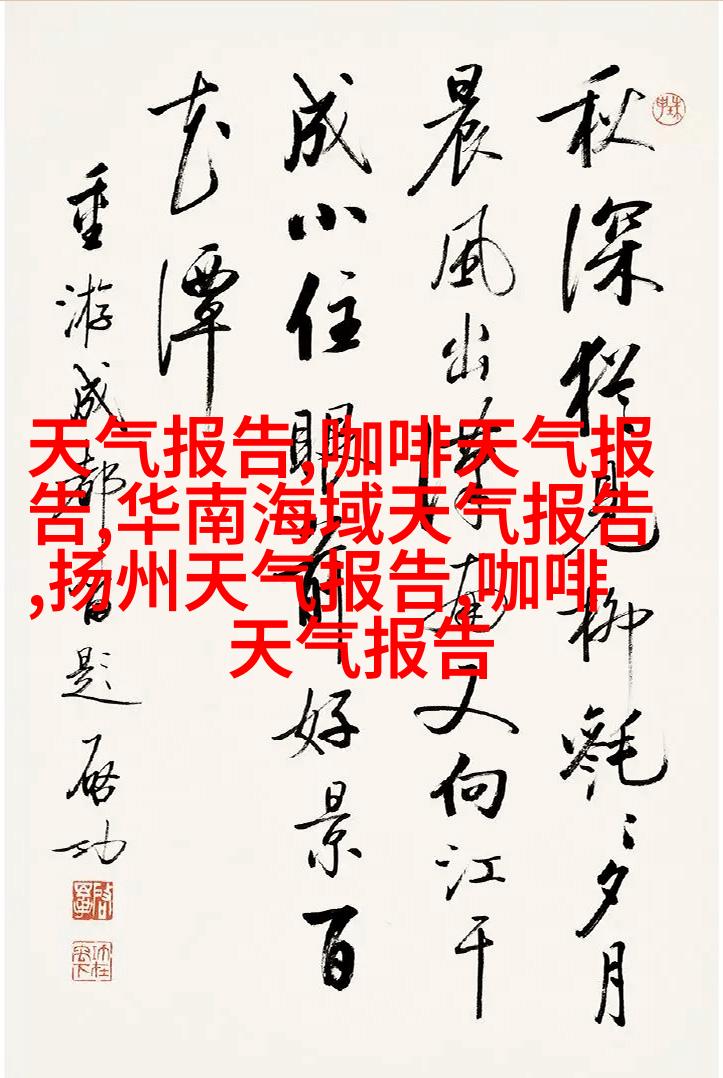 秋深猶見柳毿〻夕月
晨風出漢南又向江干
成小住眼前好景百
花潭
重游成都題 启功
天气报告,咖啡天气报
告,华南海域天气报告
,扬州天气报告,咖啡
天气报告